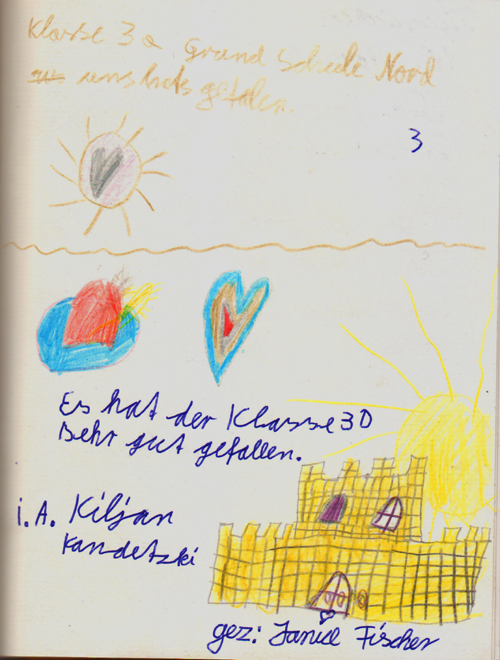 Klasse 3a Grund Schule Nord
uns hats gefalen.
3
Es hat der Klasse 3D
Sehr gut gefallen.
i.A. Kiljan
Kandetzki
gez: Fischer